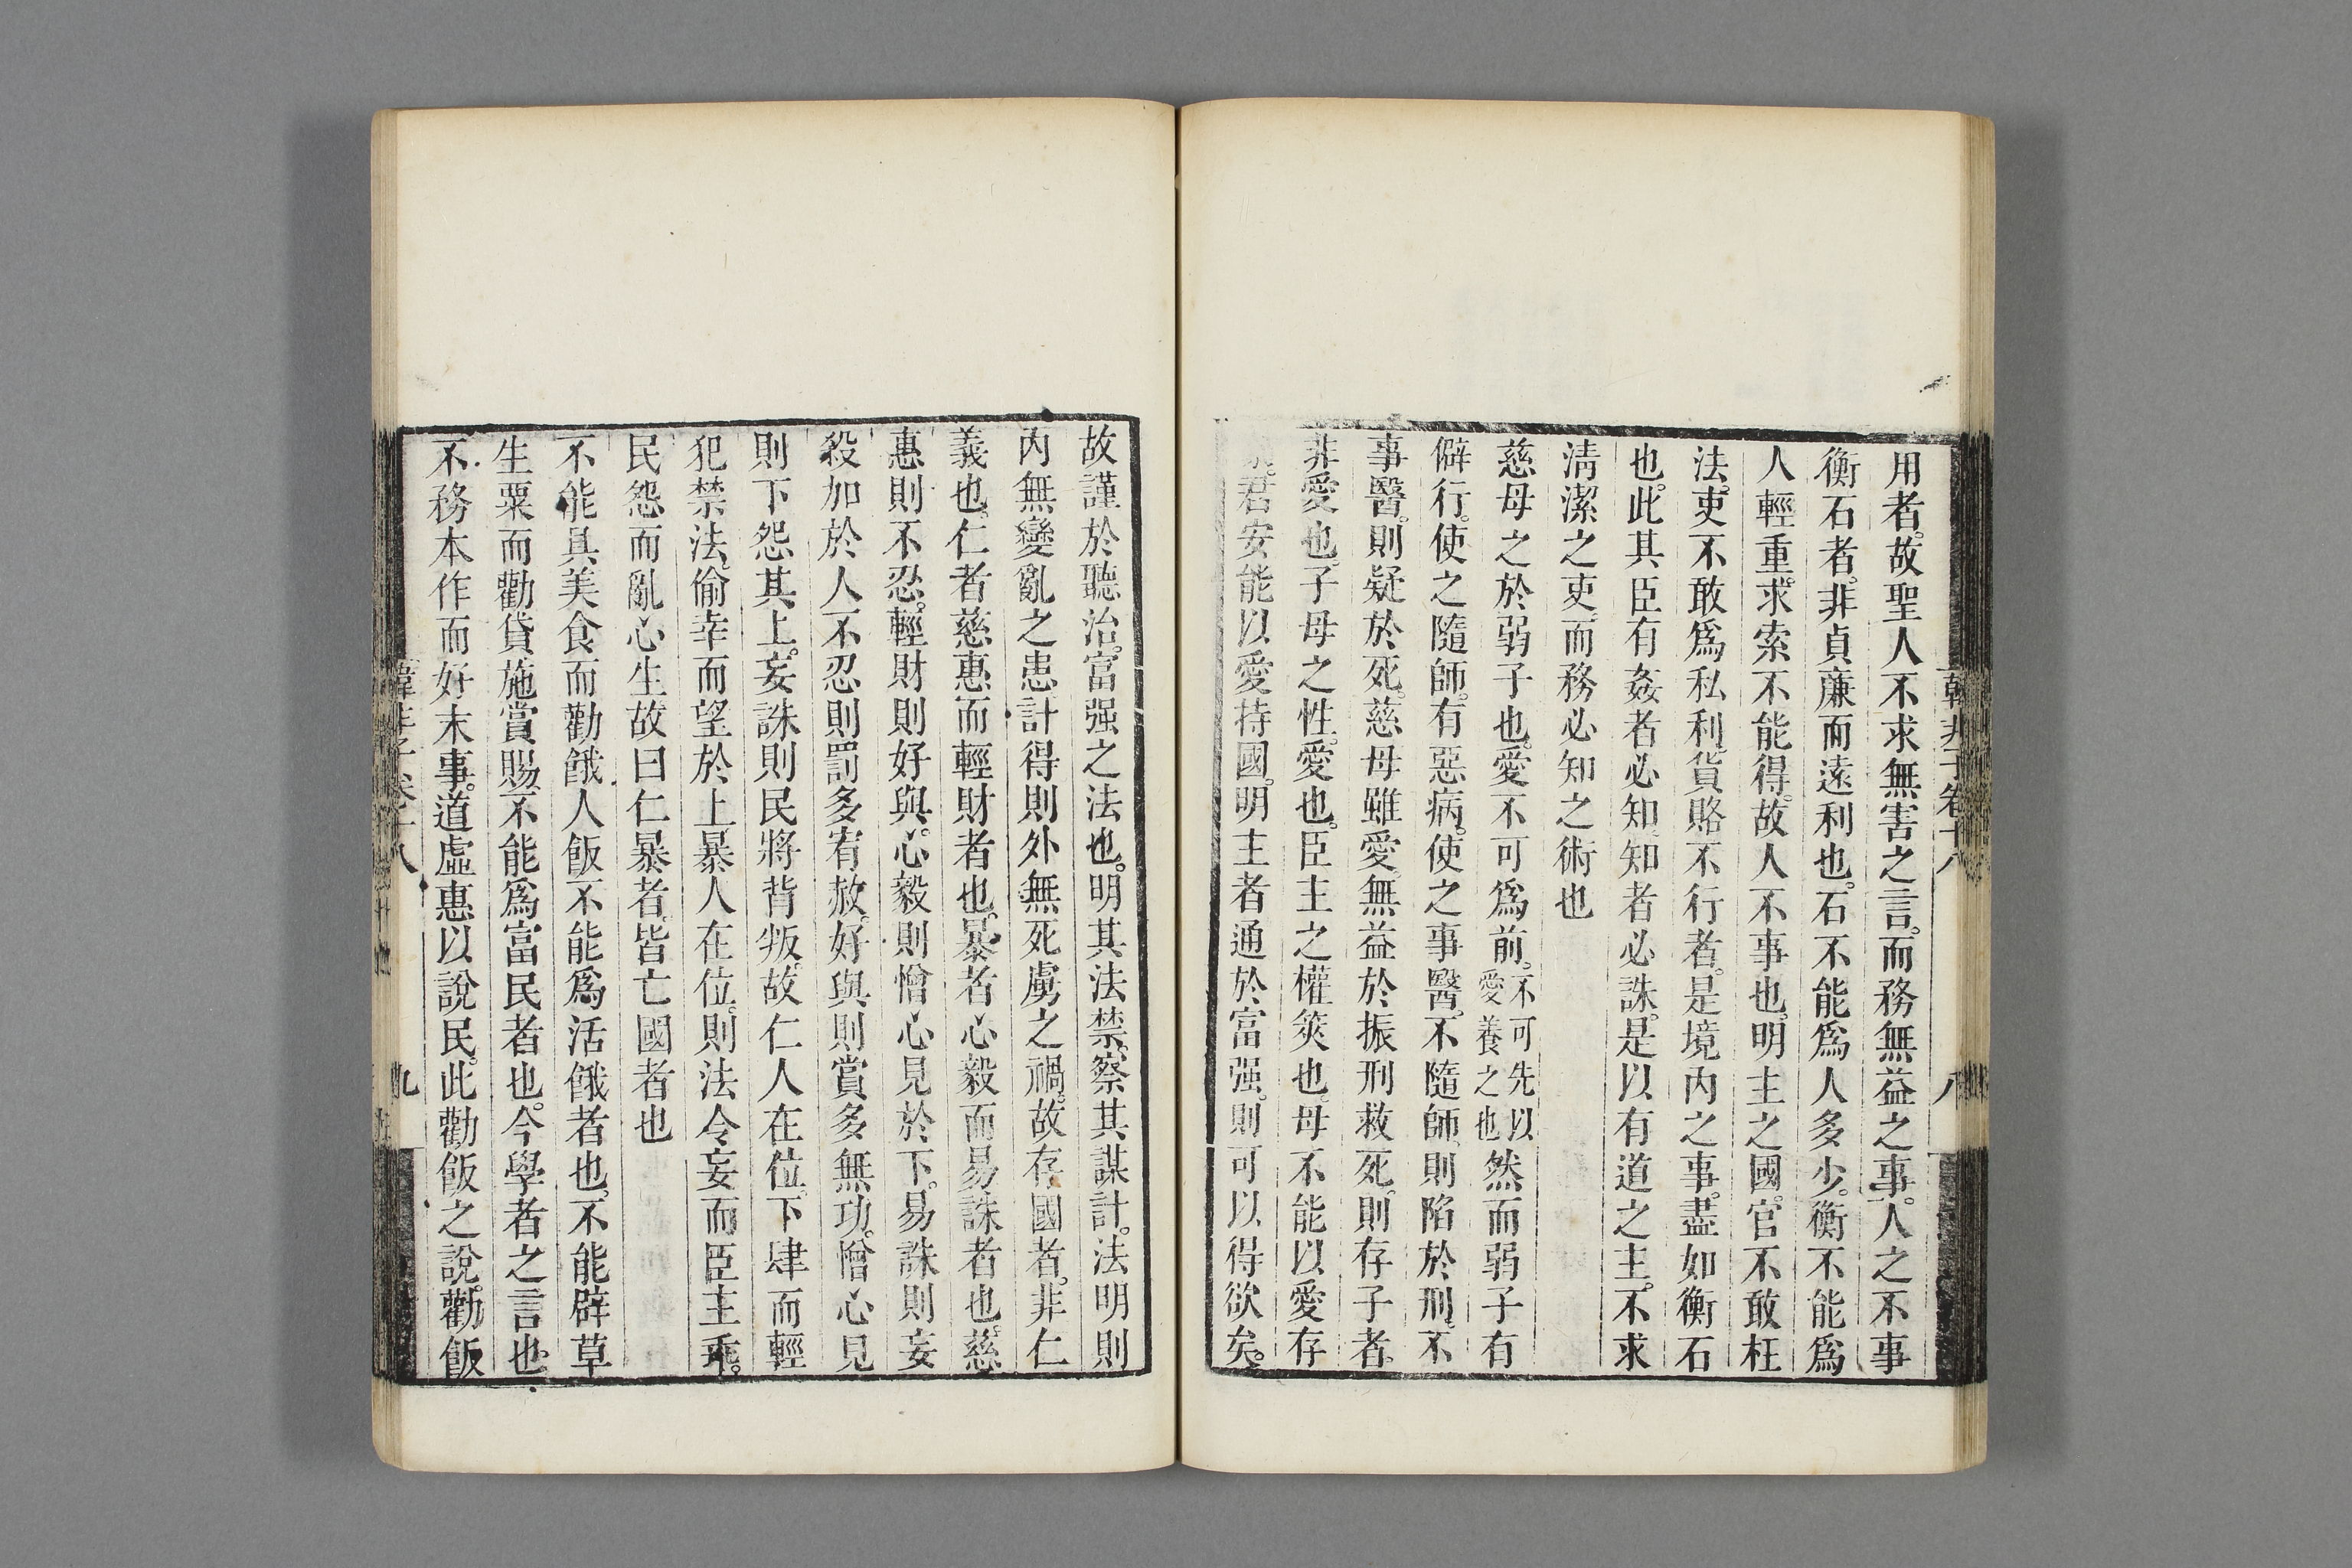 韓非子卷十八 八
用者。故聖人不求無害之言。而務無益之事。人之不事
衡石者。非貞廉而遠利也。石不能爲人多少。衡不能爲
人輕重。求索不能得。故人不事也。明主之國。官不敢枉
法。吏不敢爲私利。貨賂不行者。是境内之事。盡如衡石
也。此其臣有姦者必知。知者必誅。是以有道之主。不求
淸潔之吏。而務必知之術也
慈母之於弱子也。愛不可爲前。不可先以愛養之也然而弱子有
僻行。使之隨師。有惡病。使之事醫。不隨師。則陷於刑。不
事醫。則疑於死。慈母雖愛。無益於振刑救死。則存子者。
非愛也。子母之性。愛也。臣主之權筴也。母不能以愛存
君安能以愛持國。明主者通於富强。則可以得欲矣。
故謹於聽治。富强之法也。明其法禁。察其謀計。法明則
内無變亂之患。計得則外無死虜之禍。故存國者。非仁
義也。仁者慈惠而輕財者也。暴者心毅而易誅者也。慈
惠則不忍。輕財則好與。心毅則憎心見於下。易誅則妄
殺加於人。不忍則罰多宥赦。好與則賞多無功。憎心見
則下怨其上。妄誅則民將背叛。故仁人在位。下肆而輕
犯禁法。偷幸而望於上。暴人在位。則法令妄而臣主乖。
民怨而亂心生。故曰仁暴者。皆亡國者也
不能具美食而勸餓人飯。不能爲活餓者也。不能辟草
生粟而勸貸施賞賜。不能爲富民者也。今學者之言也。
不務本作而好末事。道虛惠以說民。此勸飯之說。勸飯
韓非子卷十八 九